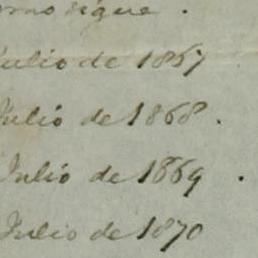 como sigue .
Julio de 1867
Julio de 1868 .
Julio de 1869 .
Julio de 1870